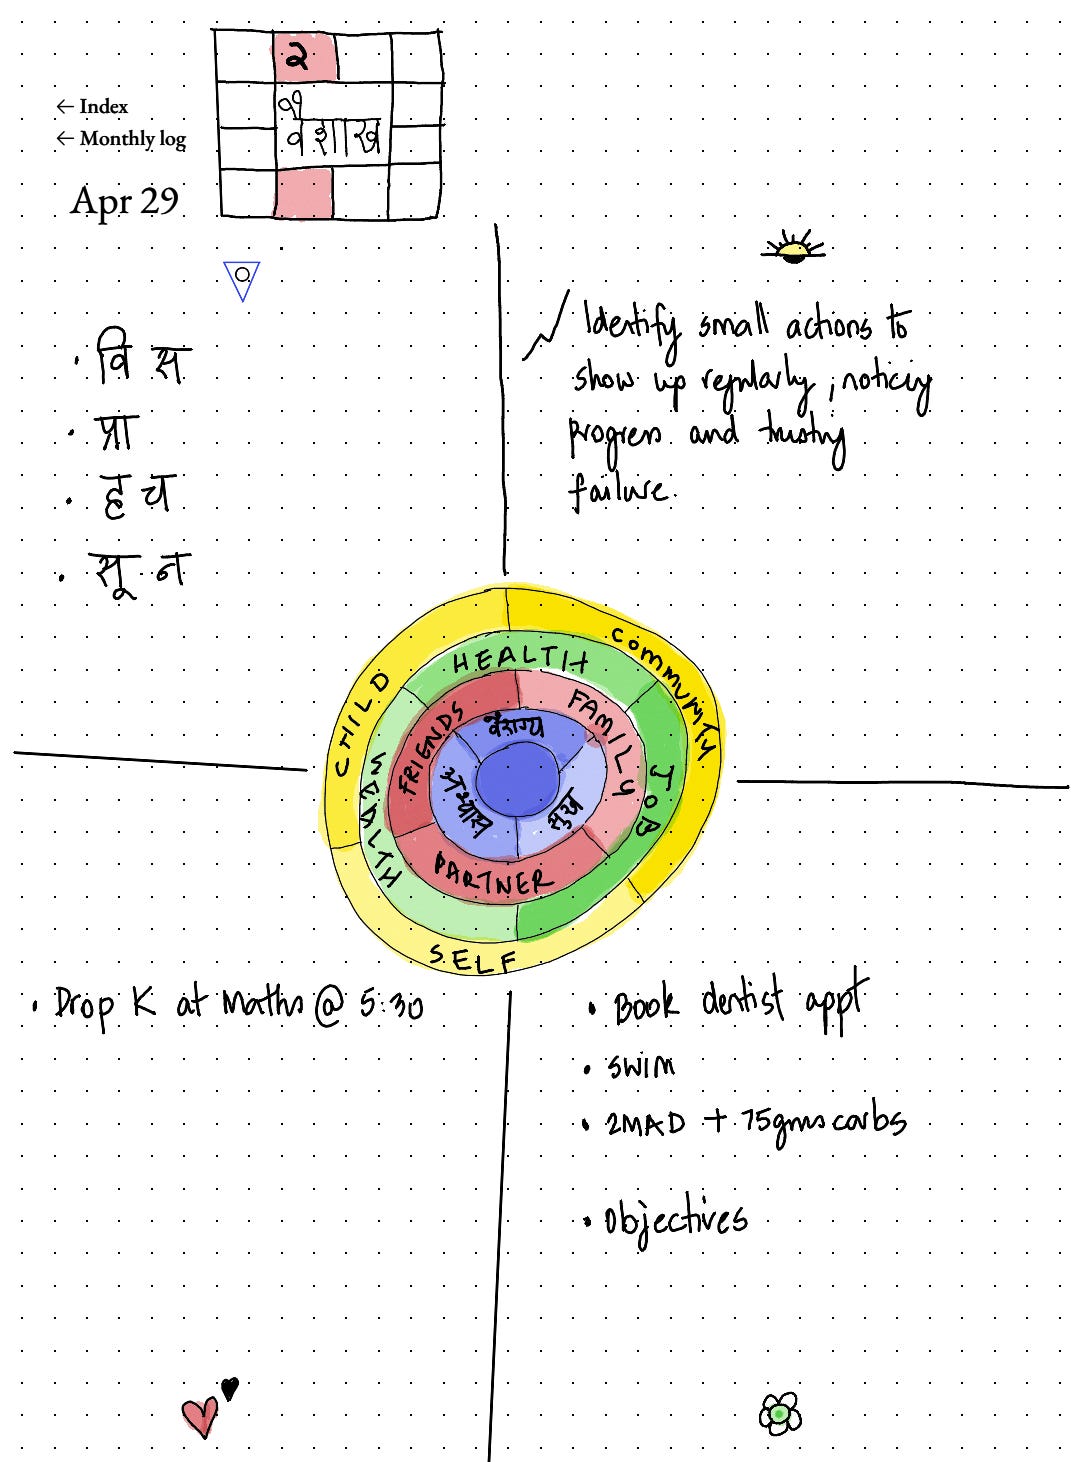 २
← Index
← Monthly log
११
वैशाख
Apr 29
· वि स
· प्रा
· ह च
· सू न
Identify small actions to
show up regularly, noticing
progress and trusting
failure.
CHILD
COMMUNITY
SELF
HEALTH
JOB
WEALTH
FRIENDS
FAMILY
PARTNER
वैराग्य
अभ्यास
सुख
· Drop K at Maths @ 5:30
· Book dentist appt
· SWIM
· 2MAD + 75gms carbs
· Objectives